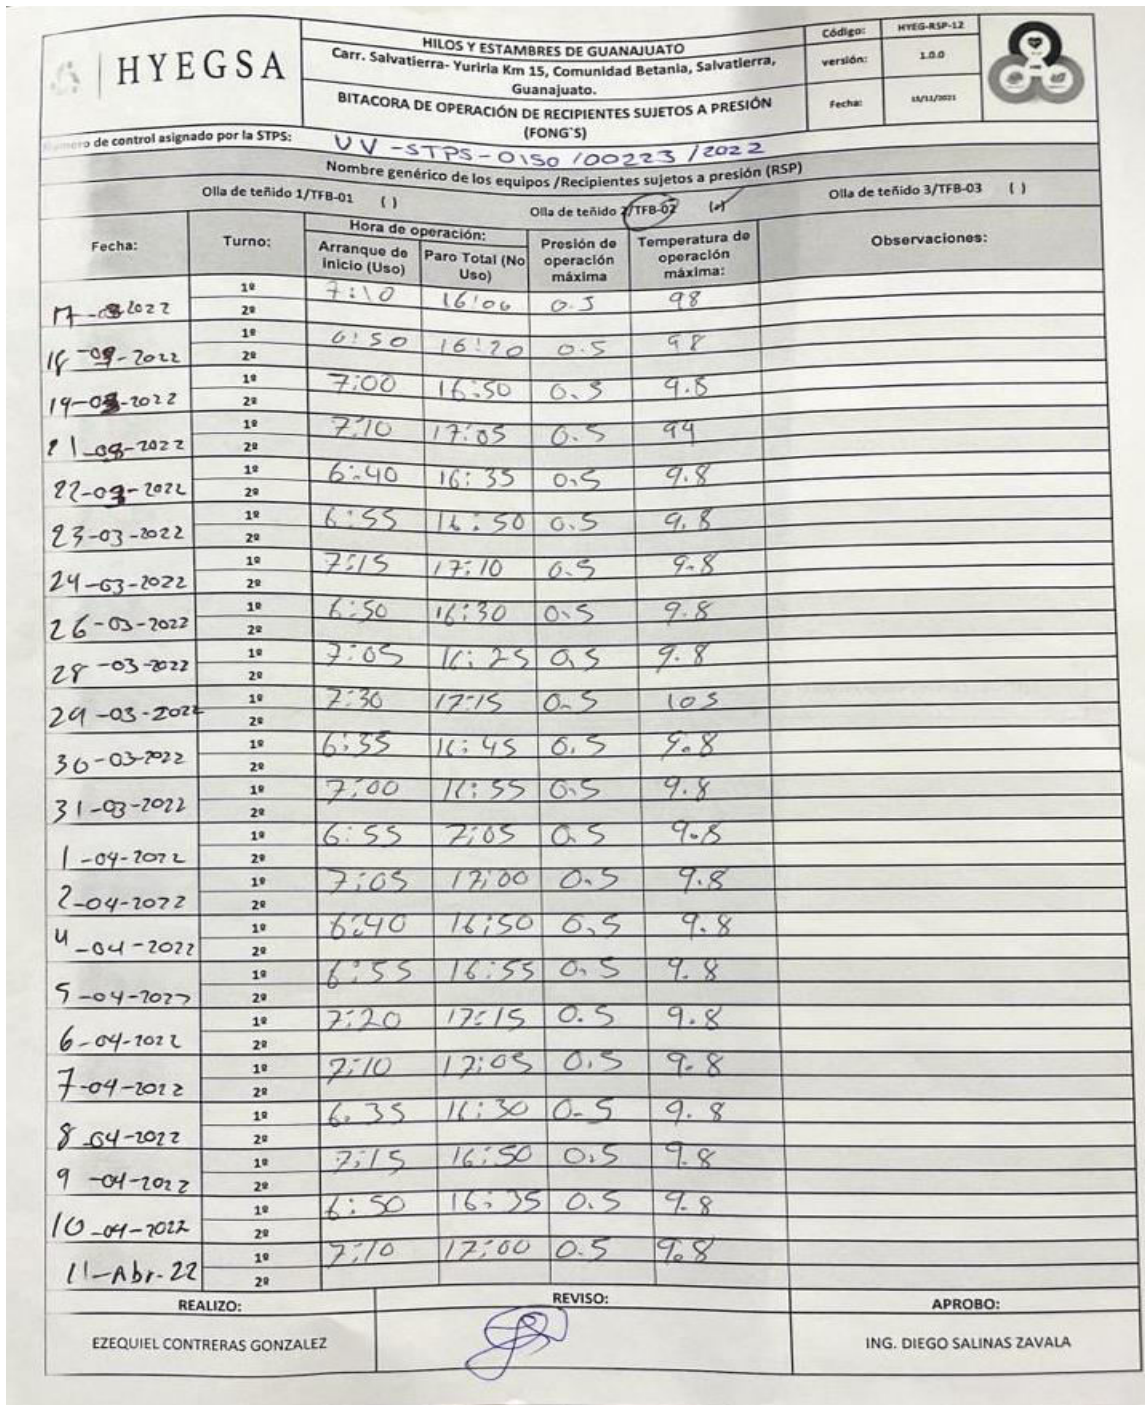 HYEGSA
HILOS Y ESTAMBRES DE GUANAJUATO
Carr. Salvatierra- Yuriria Km 15, Comunidad Betania, Salvatierra,
Guanajuato.
BITACORA DE OPERACIÓN DE RECIPIENTES SUJETOS A PRESIÓN
(FONG`S)
Código: HYEG-RSP-12
versión: 1.0.0
Fecha: 15/11/2021
Número de control asignado por la STPS: UV-STPS-0150/00223/2022
Nombre genérico de los equipos /Recipientes sujetos a presión (RSP)
Olla de teñido 1/TFB-01 ( ) Olla de teñido 2/TFB-02 (✓) Olla de teñido 3/TFB-03 ( )
Fecha: Turno: Hora de operación: Arranque de inicio (Uso) Paro Total (No Uso) Presión de operación máxima Temperatura de operación máxima: Observaciones:
17- -2022 1º 7:10 16:00 0.5 98
2º
18- -2022 1º 6:50 16:20 0.5 98
2º
19-03-2022 1º 7:00 16:50 0.5 9.8
2º
21- -2022 1º 7:10 17:05 0.5 99
2º
22-03-2022 1º 6:40 16:35 0.5 9.8
2º
23-03-2022 1º 6:55 16:50 0.5 9.8
2º
24-03-2022 1º 7:15 17:10 0.5 9.8
2º
26-03-2022 1º 6:50 16:30 0.5 9.8
2º
28-03-2022 1º 7:05 16:25 0.5 9.8
2º
29-03-2022 1º 7:30 17:15 0.5 105
2º
30-03-2022 1º 6:35 16:45 0.5 9.8
2º
31-03-2022 1º 7:00 16:55 0.5 9.8
2º
1-04-2022 1º 6:55 7:05 0.5 9.8
2º
2-04-2022 1º 7:05 17:00 0.5 9.8
2º
4-04-2022 1º 6:40 16:50 0.5 9.8
2º
5-04-2022 1º 6:55 16:55 0.5 9.8
2º
6-04-2022 1º 7:20 17:15 0.5 9.8
2º
7-04-2022 1º 7:10 17:05 0.5 9.8
2º
8-04-2022 1º 6.35 16:30 0.5 9.8
2º
9-04-2022 1º 7:15 16:50 0.5 9.8
2º
10-04-2022 1º 6:50 16:35 0.5 9.8
2º
11-Abr-22 1º 7:10 17:00 0.5 9.8
2º
REALIZO: REVISO: APROBO:
EZEQUIEL CONTRERAS GONZALEZ ING. DIEGO SALINAS ZAVALA